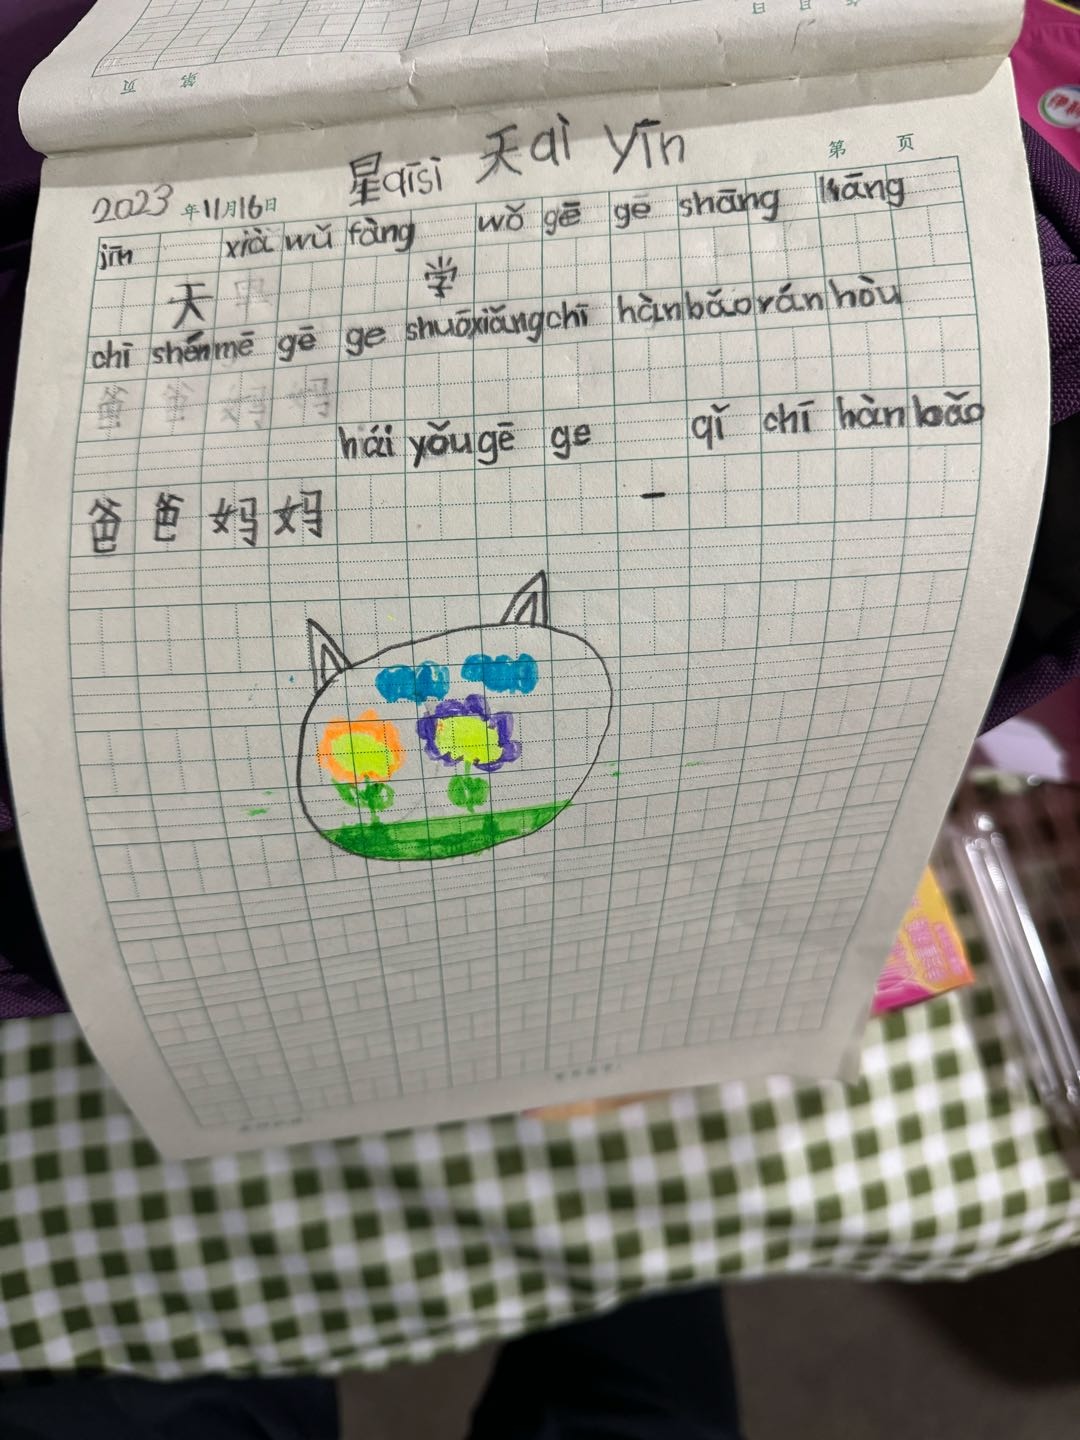 星qīsì 天qì yīn
第 页
2023年11月16日
jīn xià wǔ fàng wǒ gē ge shāng
天 学
chī shénmē gē ge shuōxiǎngchī hànbǎoránhòu
hái yǒugē ge qǐ chī hànbǎo
爸爸妈妈 一